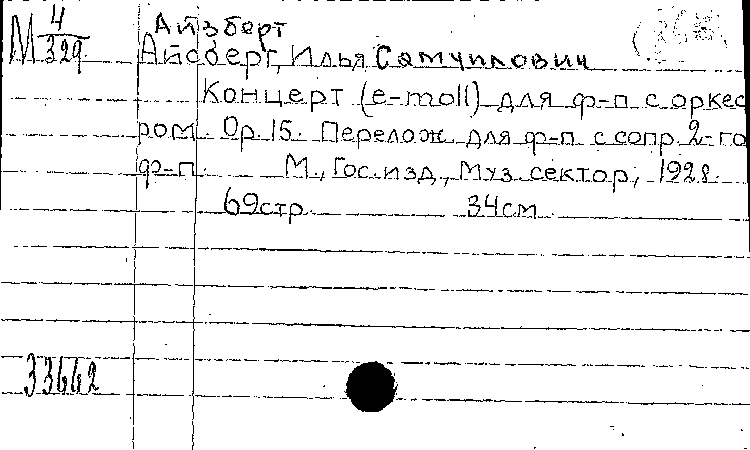 М 4/329
Айзберт
Айсберг, Илья Самуилович
Концерт (e-moll) для ф-п с оркес
ром. Op. 15. Перелож. для ф-п с сопр. 2-го
ф-п. М., Гос. изд., Муз. сектор, 1928.
69 стр. 34 см.
33642